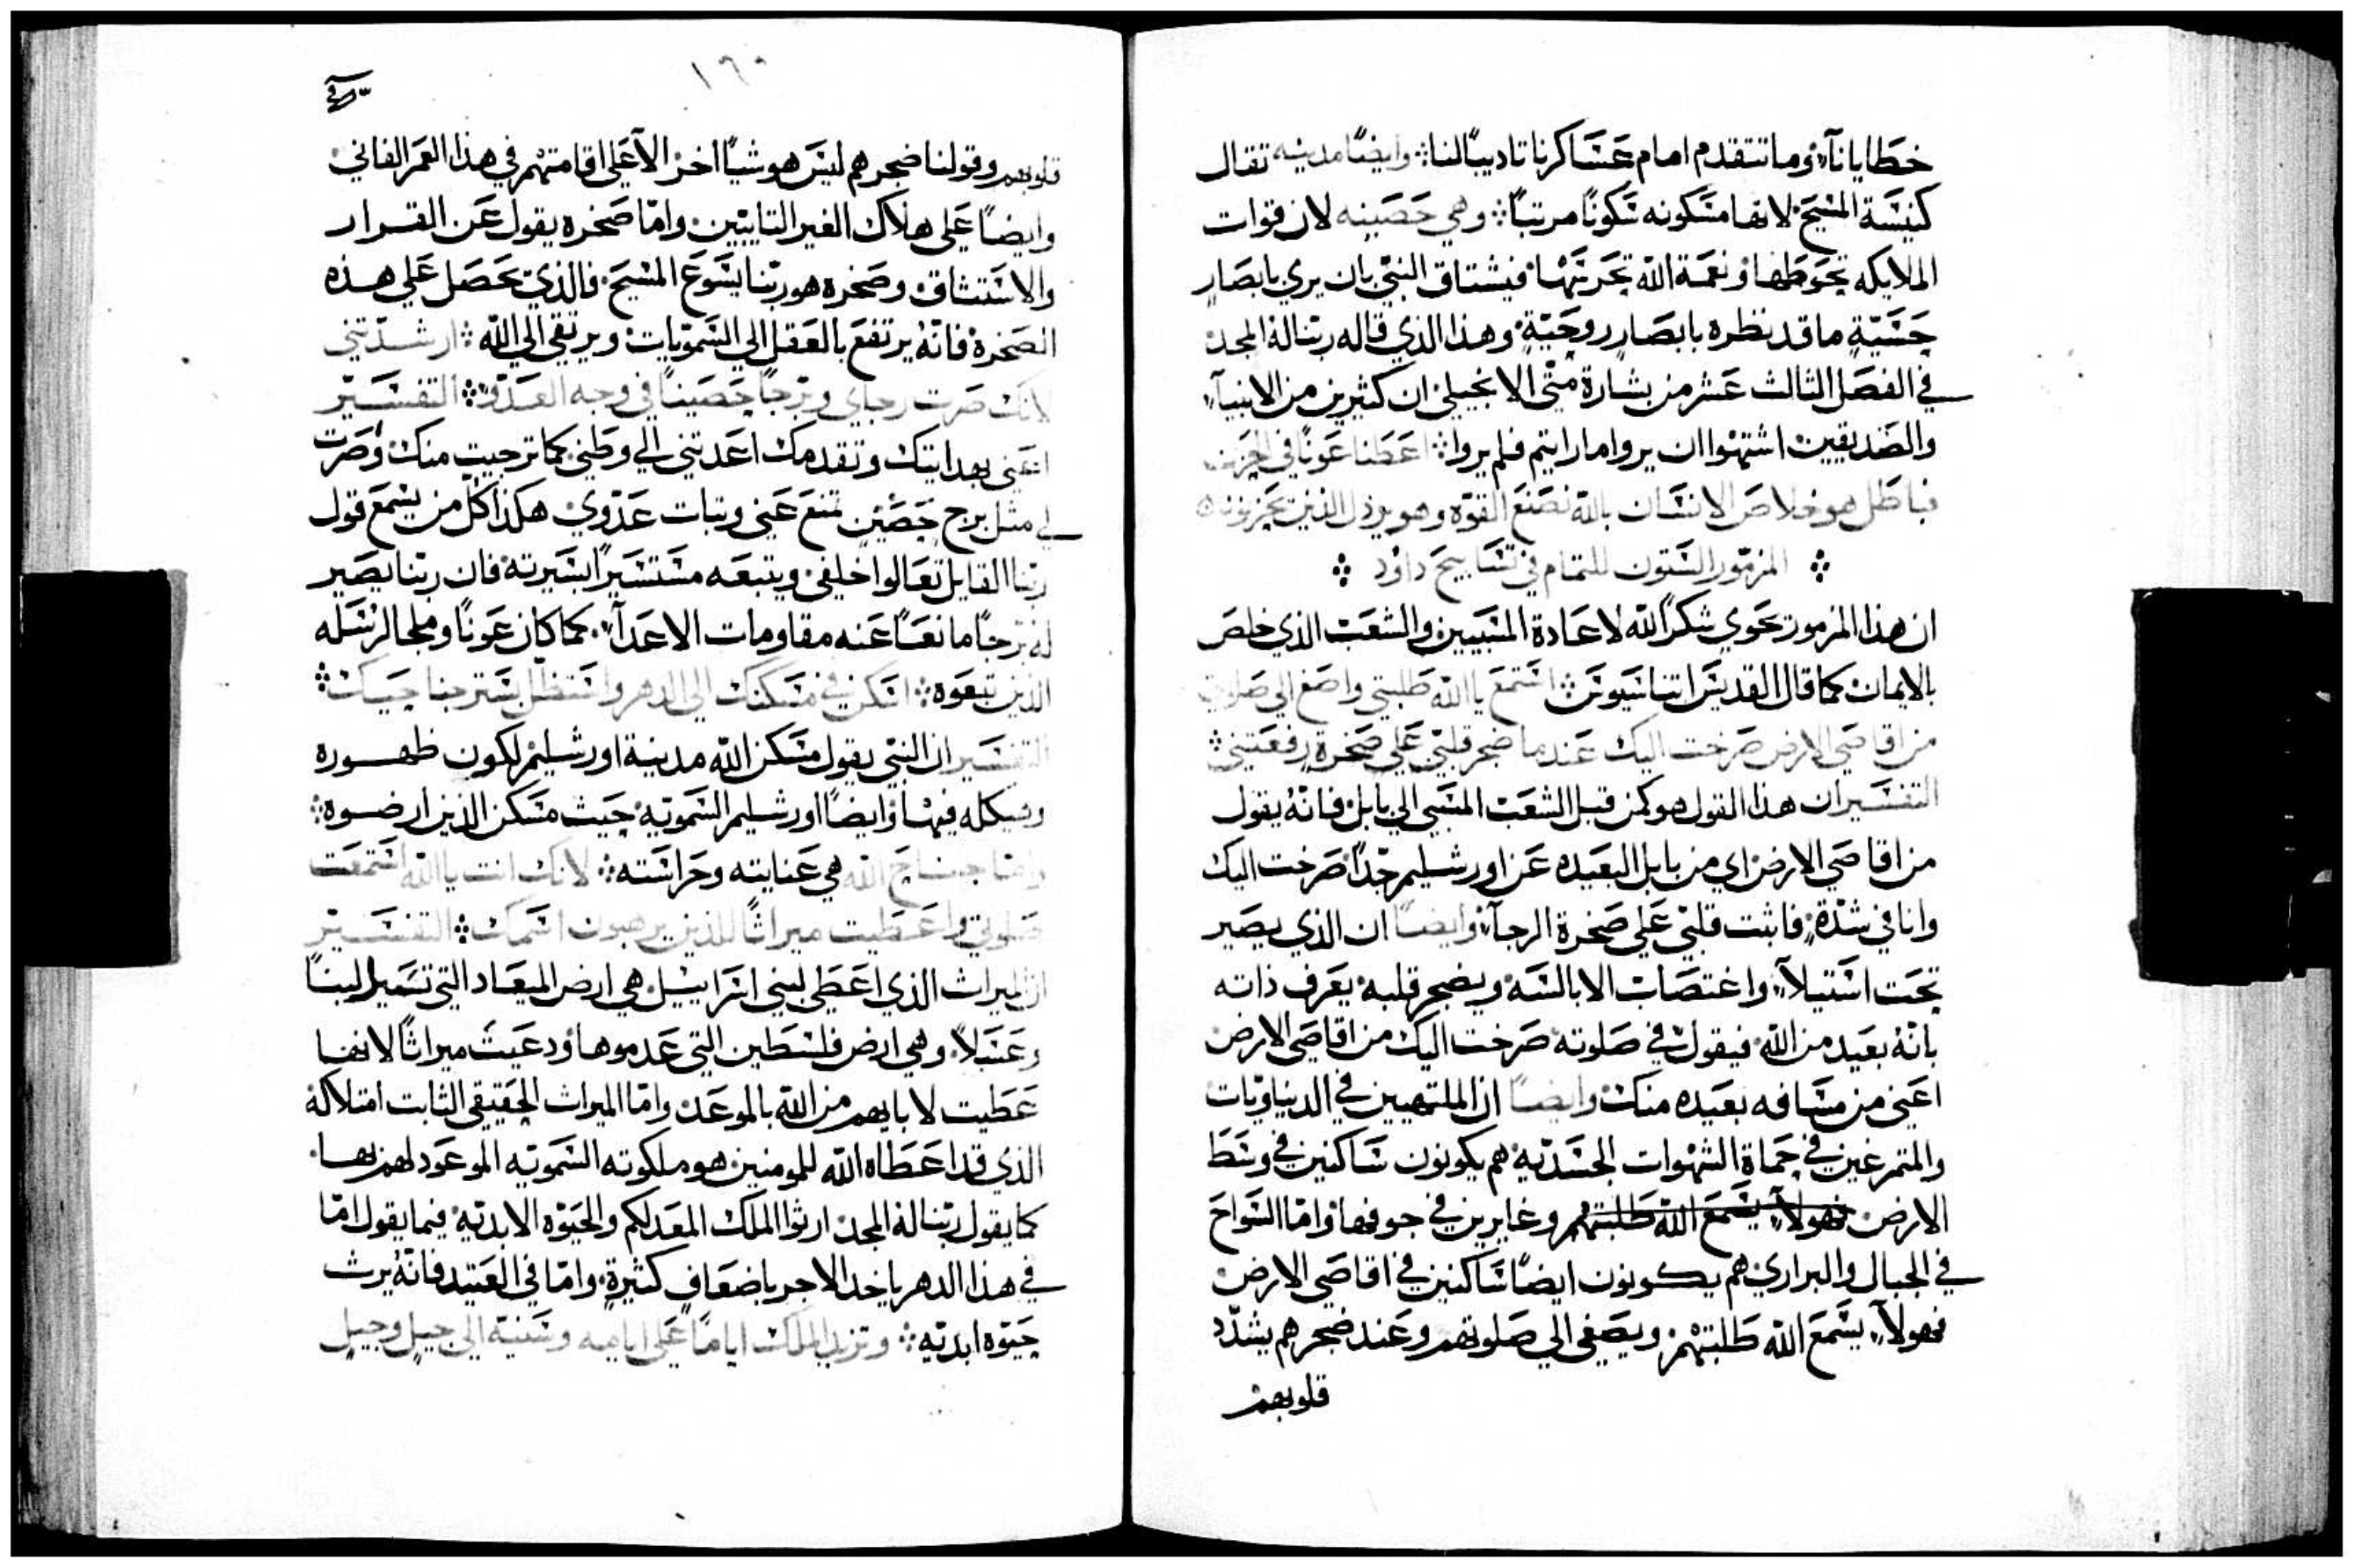 خطايانآء، وما تتقدم امام عساكرنا تاديبًا لنا: وايضًا مدينه تقال
كنيسة المسيح لانها مسكونه سكونًا مرتبًا: وهي حصينه لان قوات
الملايكه تحوطها ونعمة الله تحرسها فيشتاق النبي بان يري بابصارٍ
حسيّةٍ ما قد نظره بابصارٍ روحيّةٍ وهذا الذي قاله ربنا له المجد
في الفصل الثالث عشر من بشارة متي الانجيلي ان كثيرين من الانبيآء
والصديقين اشتهوا ان يروا ما رايتم فلم يروا: اعطنا عونًا في الحزن
فباطل هو خلاص الانسان بالله نصنع القوة وهو يرذل الذين يحزنونا
المزمور الستون للتمام في تسابيح داود
ان هذا المزمور يحوي شكرًا لله لاعادة المسبيين والشعب الذي خلص
بالايمان كما قال القديس اتناسيوس: استمع يا الله طلبتي واصغ الي صلوتي
من اقاصي الارض صرخت اليك عندما ضجر قلبي علي صخرةٍ رفعتني:
التفسير ان هذا القول هو كمن قبل الشعب المسبي الي بابل فانه يقول
من اقاصي الارض اي من بابل البعيده عن اورشليم جدًا صرخت اليك
وانا في شدّةٍ، فاثبت قلبي علي صخرة الرجآء وايضًا ان الذي يصير
تحت استيلآء واغتصاب الابالسه ويضجر قلبه يعرف ذاته
بانه بعيد من الله فيقول في صلوته صرخت اليك من اقاصي الارض
اعني من مسافه بعيده منك وايضًا ان الملتهيين في الدنياويات
والمتمرغين في حماة الشهوات الجسديّه هم يكونون ساكنين في وسط
الارض فهولآء يسمع الله طلبتهم وغايرين في جوفها واما السواح
في الجبال والبراري هم يكونون ايضًا ساكنين في اقاصي الارض
فهولآء يسمع الله طلبتهم ويصغي الي صلوتهم وعند ضجرهم يشدّد
قلوبهم
١٦٠
قلوبهم وقولنا ضجرهم ليس هو شيًا اخر الا علي اقامتهم في هذا العمر الفاني
وايضًا علي هلاك الغير التايبين واما صخره يقول عن القرار
والاستثاق وصخره هو ربنا يسوع المسيح فالذي يحصل علي هذه
الصخرة فانه يرتفع بالعقل الي السمويات ويرتقي الي الله: ارشدتني
لانك صرت رجاي وبرجًا حصينًا في وجه العدو: التفسير
اعني بهدايتك وتقدمك اعدتني الي وطني كما ترجيت منك وصرت
لي مثل برج حصين تمنع عني وثبات عدوي هكذا كل من يسمع قول
ربنا القايل تعالوا خلفي ويتبعه مستسيرًا بسيرته فان ربنا يصير
له برجًا مانعًا عنه مقاومات الاعدآء. كما كان عونًا وملجا لرسله
الذين تبعوه: اسكن في مسكنك الي الدهر واستظل بستر جناحيك:
التفسير ان النبي يقول مسكن الله مدينة اورشليم لكون ظهوره
وهيكله فيها وايضًا اورشليم السمويه حيث مسكن الذين ارضوه:
واما جناح الله هي عنايته وحراسته: لانك انت يا الله استمعت
صلوتي واعطيت ميراثًا للذين يرهبون اسمك: التفسير
ان الميراث الذي اعطي لبني اسراييل هي ارض الميعاد التي تسيل لبنًا
وعسلاً وهي ارض فلسطين التي عدموها ودعيت ميراثًا لانها
عطيت لابايهم من الله بالموعد واما الميراث الحقيقي الثابت امتلاكه
الذي قد اعطاه الله للمومنين هو ملكوته السمويه الموعود لهم بها.
كما يقول ربنا له المجد ارثوا الملك المعد لكم والحيوه الابديّه فيما يقول امّا
في هذا الدهر ياخد الاجر باضعافٍ كثيرةٍ، وامّا في العتيد فانه يرث
حيوه ابديّه: وتزيد الملك ايامًا علي ايامه وسنيه الي جيلٍ وجيلٍ